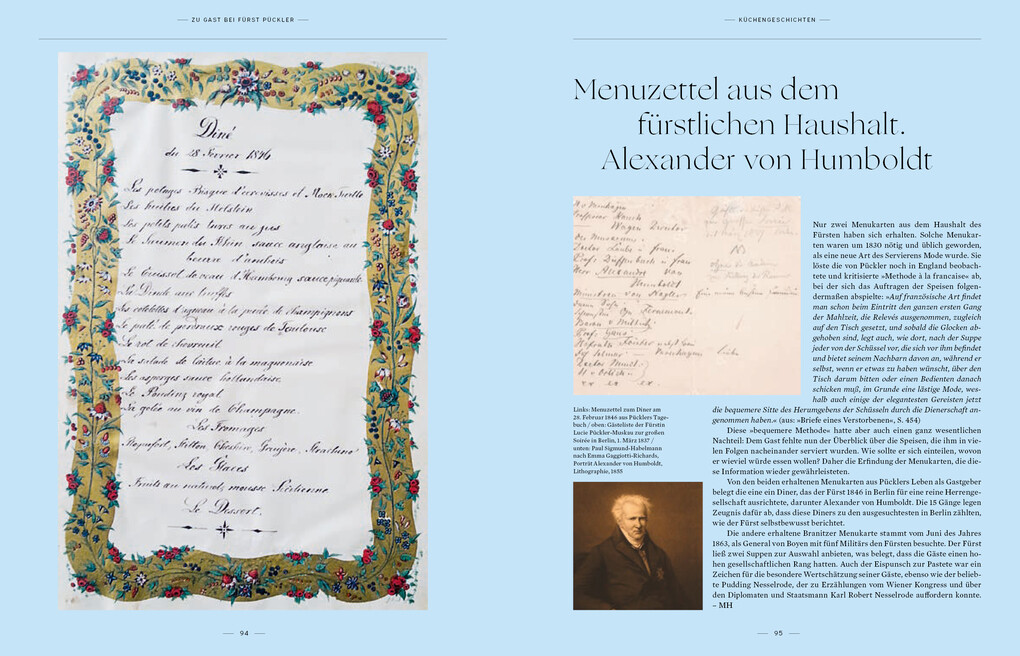 ZU GAST BEI FÜRST PÜCKLER
Diné
du 28 Fevrier 1846
Les potages Bisque d'écrevisses et Mock Turtle
Les huitres du Holstein
Les petits patés au jus
Le Saumon du Rhin sauce anglaise au
beurre d'anchois
Le Cuissot de veau d'Hambourg sauce piquante
La Dinde aux truffes
Les cotelettes d'agneau à la purée de Champignons
Le paté de perdreaux rouges de Toulouse
Le rot de chevreuil
La salade de laitue à la magonnaise
Les asperges sauce hollandaise
Le Pouding royal
La gelée au vin de Champagne
Les Fromages
Roquefort, Stilton, Cheshire, Gruyère,
Les Glaces
Fruits au naturel, mousse
Le Dessert.
94
KÜCHENGESCHICHTEN
Menuzettel aus dem
fürstlichen Haushalt.
Alexander von Humboldt
Professor
Wagen
Doctor Laube u frau
Profs Dieffenbach u frau
Herr Alexander von
Humboldt
er er er.
Nur zwei Menukarten aus dem Haushalt des
Fürsten haben sich erhalten. Solche Menukar-
ten waren um 1830 nötig und üblich geworden,
als eine neue Art des Servierens Mode wurde. Sie
löste die von Pückler noch in England beobach-
tete und kritisierte »Methode à la francaise« ab,
bei der sich das Auftragen der Speisen folgen-
dermaßen abspielte: »Auf französische Art findet
man schon beim Eintritt den ganzen ersten Gang
der Mahlzeit, die Relevés ausgenommen, zugleich
auf den Tisch gesetzt, und sobald die Glocken ab-
gehoben sind, legt auch, wie dort, nach der Suppe
jeder von der Schüssel vor, die sich vor ihm befindet
und bietet seinem Nachbarn davon an, während er
selbst, wenn er etwas zu haben wünscht, über den
Tisch darum bitten oder einen Bedienten danach
schicken muß, im Grunde eine lästige Mode, wes-
halb auch einige der elegantesten Gereisten jetzt
die bequemere Sitte des Herumgebens der Schüsseln durch die Dienerschaft an-
genommen haben.« (aus: »Briefe eines Verstorbenen«, S. 454)
Diese »bequemere Methode« hatte aber auch einen ganz wesentlichen
Nachteil: Dem Gast fehlte nun der Überblick über die Speisen, die ihm in vie-
len Folgen nacheinander serviert wurden. Wie sollte er sich einteilen, wovon
er wieviel würde essen wollen? Daher die Erfindung der Menukarten, die die-
se Information wieder gewährleisteten.
Von den beiden erhaltenen Menukarten aus Pücklers Leben als Gastgeber
belegt die eine ein Diner, das der Fürst 1846 in Berlin für eine reine Herrenge-
sellschaft ausrichtete, darunter Alexander von Humboldt. Die 15 Gänge legen
Zeugnis dafür ab, dass diese Diners zu den ausgesuchtesten in Berlin zählten,
wie der Fürst selbstbewusst berichtet.
Die andere erhaltene Branitzer Menukarte stammt vom Juni des Jahres
1863, als General von Boyen mit fünf Militärs den Fürsten besuchte. Der Fürst
ließ zwei Suppen zur Auswahl anbieten, was belegt, dass die Gäste einen ho-
hen gesellschaftlichen Rang hatten. Auch der Eispunsch zur Pastete war ein
Zeichen für die besondere Wertschätzung seiner Gäste, ebenso wie der belieb-
te Pudding Nesselrode, der zu Erzählungen vom Wiener Kongress und über
den Diplomaten und Staatsmann Karl Robert Nesselrode auffordern konnte.
– MH
Links: Menuzettel zum Diner am
28. Februar 1846 aus Pücklers Tage-
buch / oben: Gästeliste der Fürstin
Lucie Pückler-Muskau zur großen
Soirée in Berlin, 1. März 1837 /
unten: Paul Sigmund-Habelmann
nach Emma Gaggiotti-Richards,
Porträt Alexander von Humboldt,
Lithographie, 1855
95